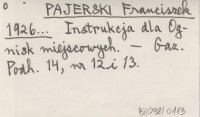 PAJERSKI Franciszek
1926... Instrukcja dla Og-
nisk miejscowych. — Gaz.
Podh. 14, nr 12 i 13.